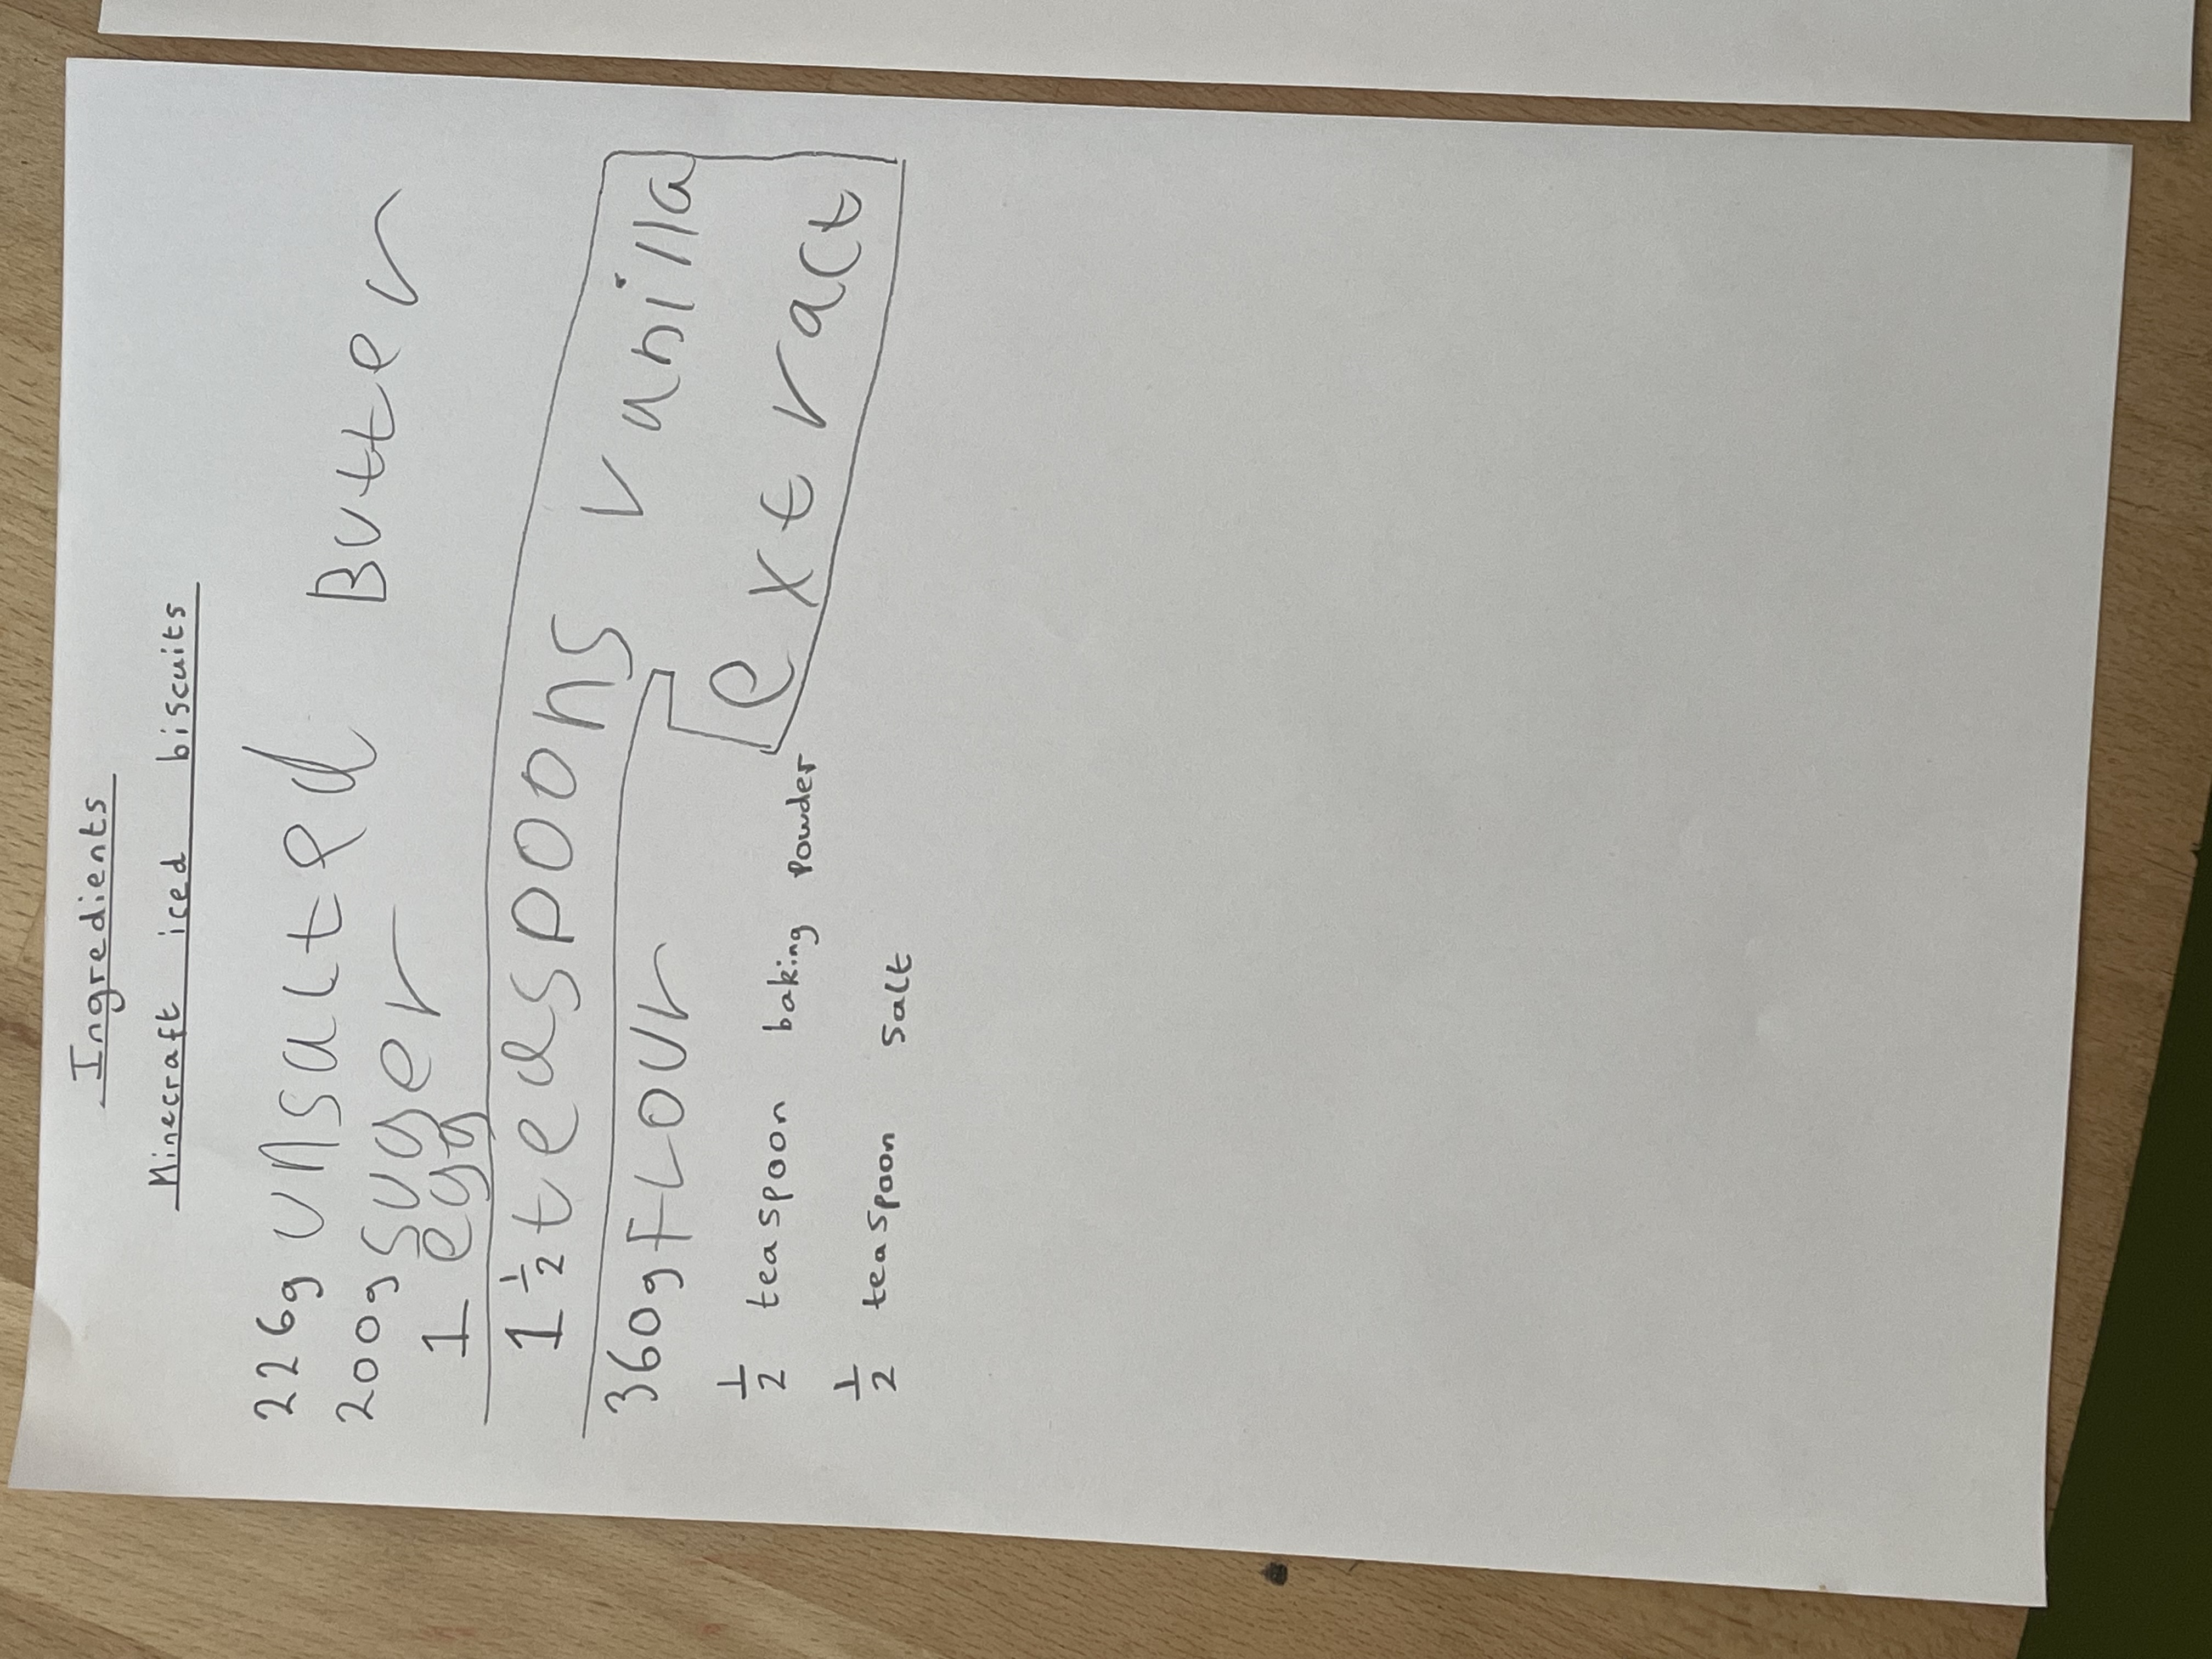 Ingredients
Minecraft iced biscuits
226g unsalted Butter
200g suger
1 egg
1 1/2 teaspoons vanilla
extract
360g FLour
1/2 teaspoon baking powder
1/2 teaspoon salt